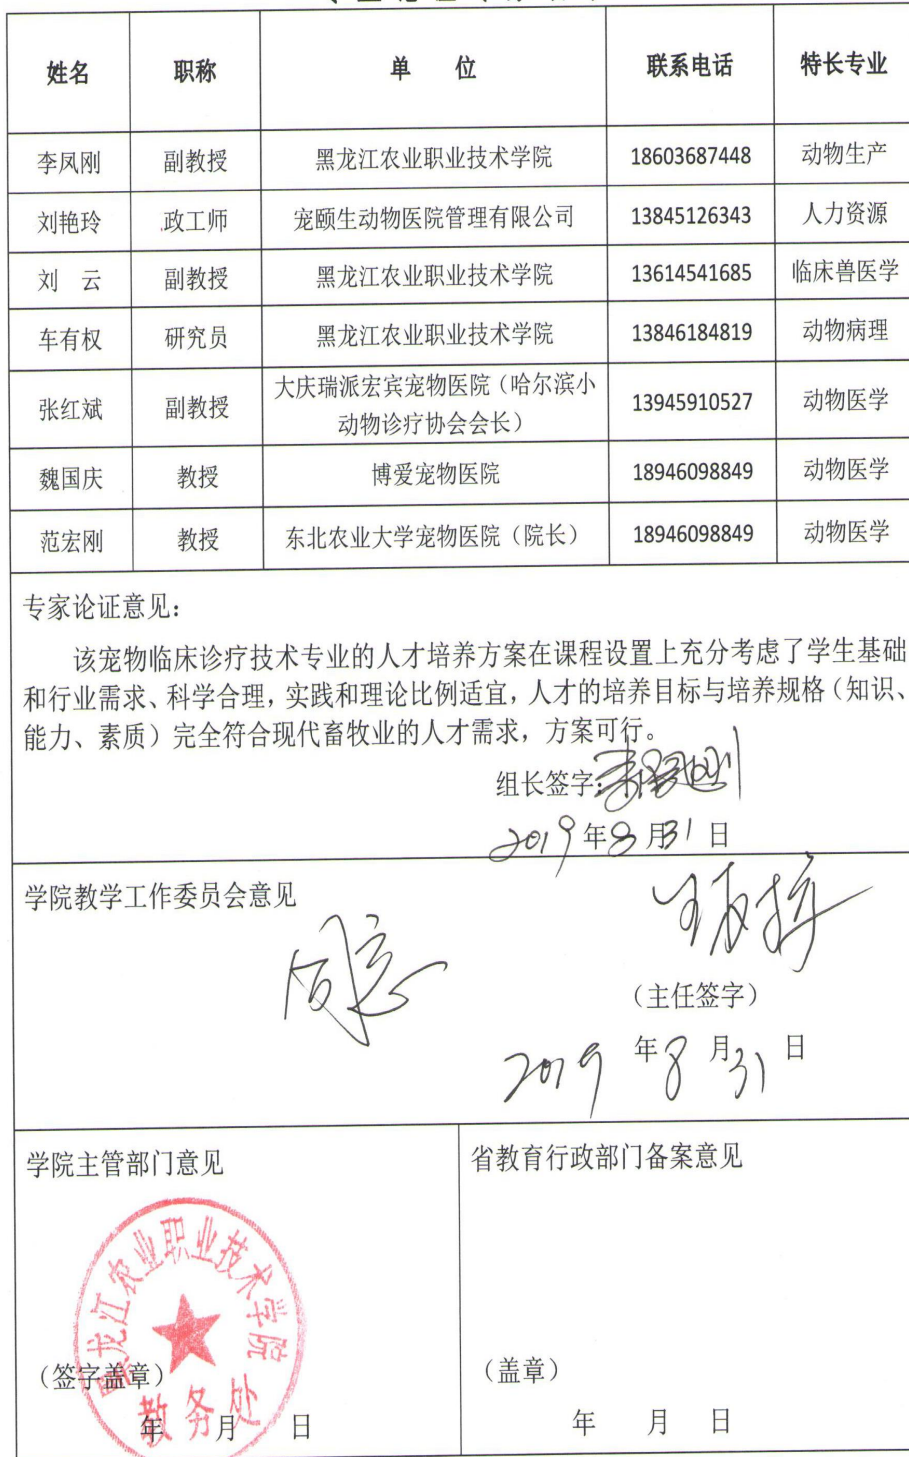 姓名 职称 单 位 联系电话 特长专业
李凤刚 副教授 黑龙江农业职业技术学院 18603687448 动物生产
刘艳玲 政工师 宠颐生动物医院管理有限公司 13845126343 人力资源
刘 云 副教授 黑龙江农业职业技术学院 13614541685 临床兽医学
车有权 研究员 黑龙江农业职业技术学院 13846184819 动物病理
张红斌 副教授 大庆瑞派宏宾宠物医院（哈尔滨小
动物诊疗协会会长） 13945910527 动物医学
魏国庆 教授 博爱宠物医院 18946098849 动物医学
范宏刚 教授 东北农业大学宠物医院（院长） 18946098849 动物医学
专家论证意见：
该宠物临床诊疗技术专业的人才培养方案在课程设置上充分考虑了学生基础
和行业需求、科学合理，实践和理论比例适宜，人才的培养目标与培养规格（知识、
能力、素质）完全符合现代畜牧业的人才需求，方案可行。
组长签字：
2019年8月31日
学院教学工作委员会意见
同意
（主任签字）
2019年8月31日
学院主管部门意见
黑龙江农业职业技术学院
（签字盖章）
教务处
年 月 日
省教育行政部门备案意见
（盖章）
年 月 日